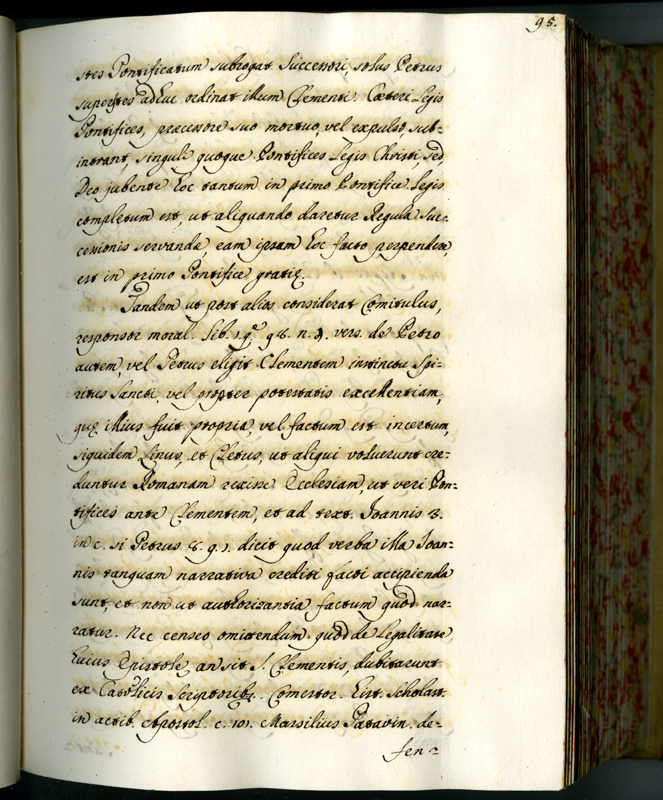 95.
stes Pontificatum subrogat Successori, solus Petrus
superstes adhuc ordinat illum Clementi. Cæteri Legis
Pontifices, præcessore suo mortuo, vel expulso, sub=
intrant, singuli quoque Pontifices Legis Christi, sed,
Deo jubente hoc tantum in primo Pontifice Legis
completum est, ut aliquando daretur Regula suc=
cessionis servandę, eam ipsam hoc facto perpendere,
est in primo Pontifice gratię.
Tandem ut post alios considerat Comitulus,
responsor moral. lib. 1. q. 98. n. 9. vers. de Petro
autem, vel Petrus eligit Clementem instinctu Spi=
ritus Sancti, vel propter potestatis excellentiam,
quę illius fuit propria, vel factum est incertum,
siquidem Linus, et Cletus, ut aliqui voluerunt cre=
duntur Romanam rexisse Ecclesiam, ut veri Pon=
tifices ante Clementem, et ad text. Joannis 3.
in c. si Petrus 8. q. 1. dicit quod verba illa Joan=
nis tanquam narrativa crediti facti accipienda
sunt, et non ut authorizantia factum quod nar=
ratur. Nec censeo omittendum quod de legalitate
huius Epistolę, an sit S. Clementis, dubitarunt
ex Catolicis Scriptorib. Comestor. hist. Scholast.
in actib. Apostol. c. 101. Marsilius Patavin. de=
fen=